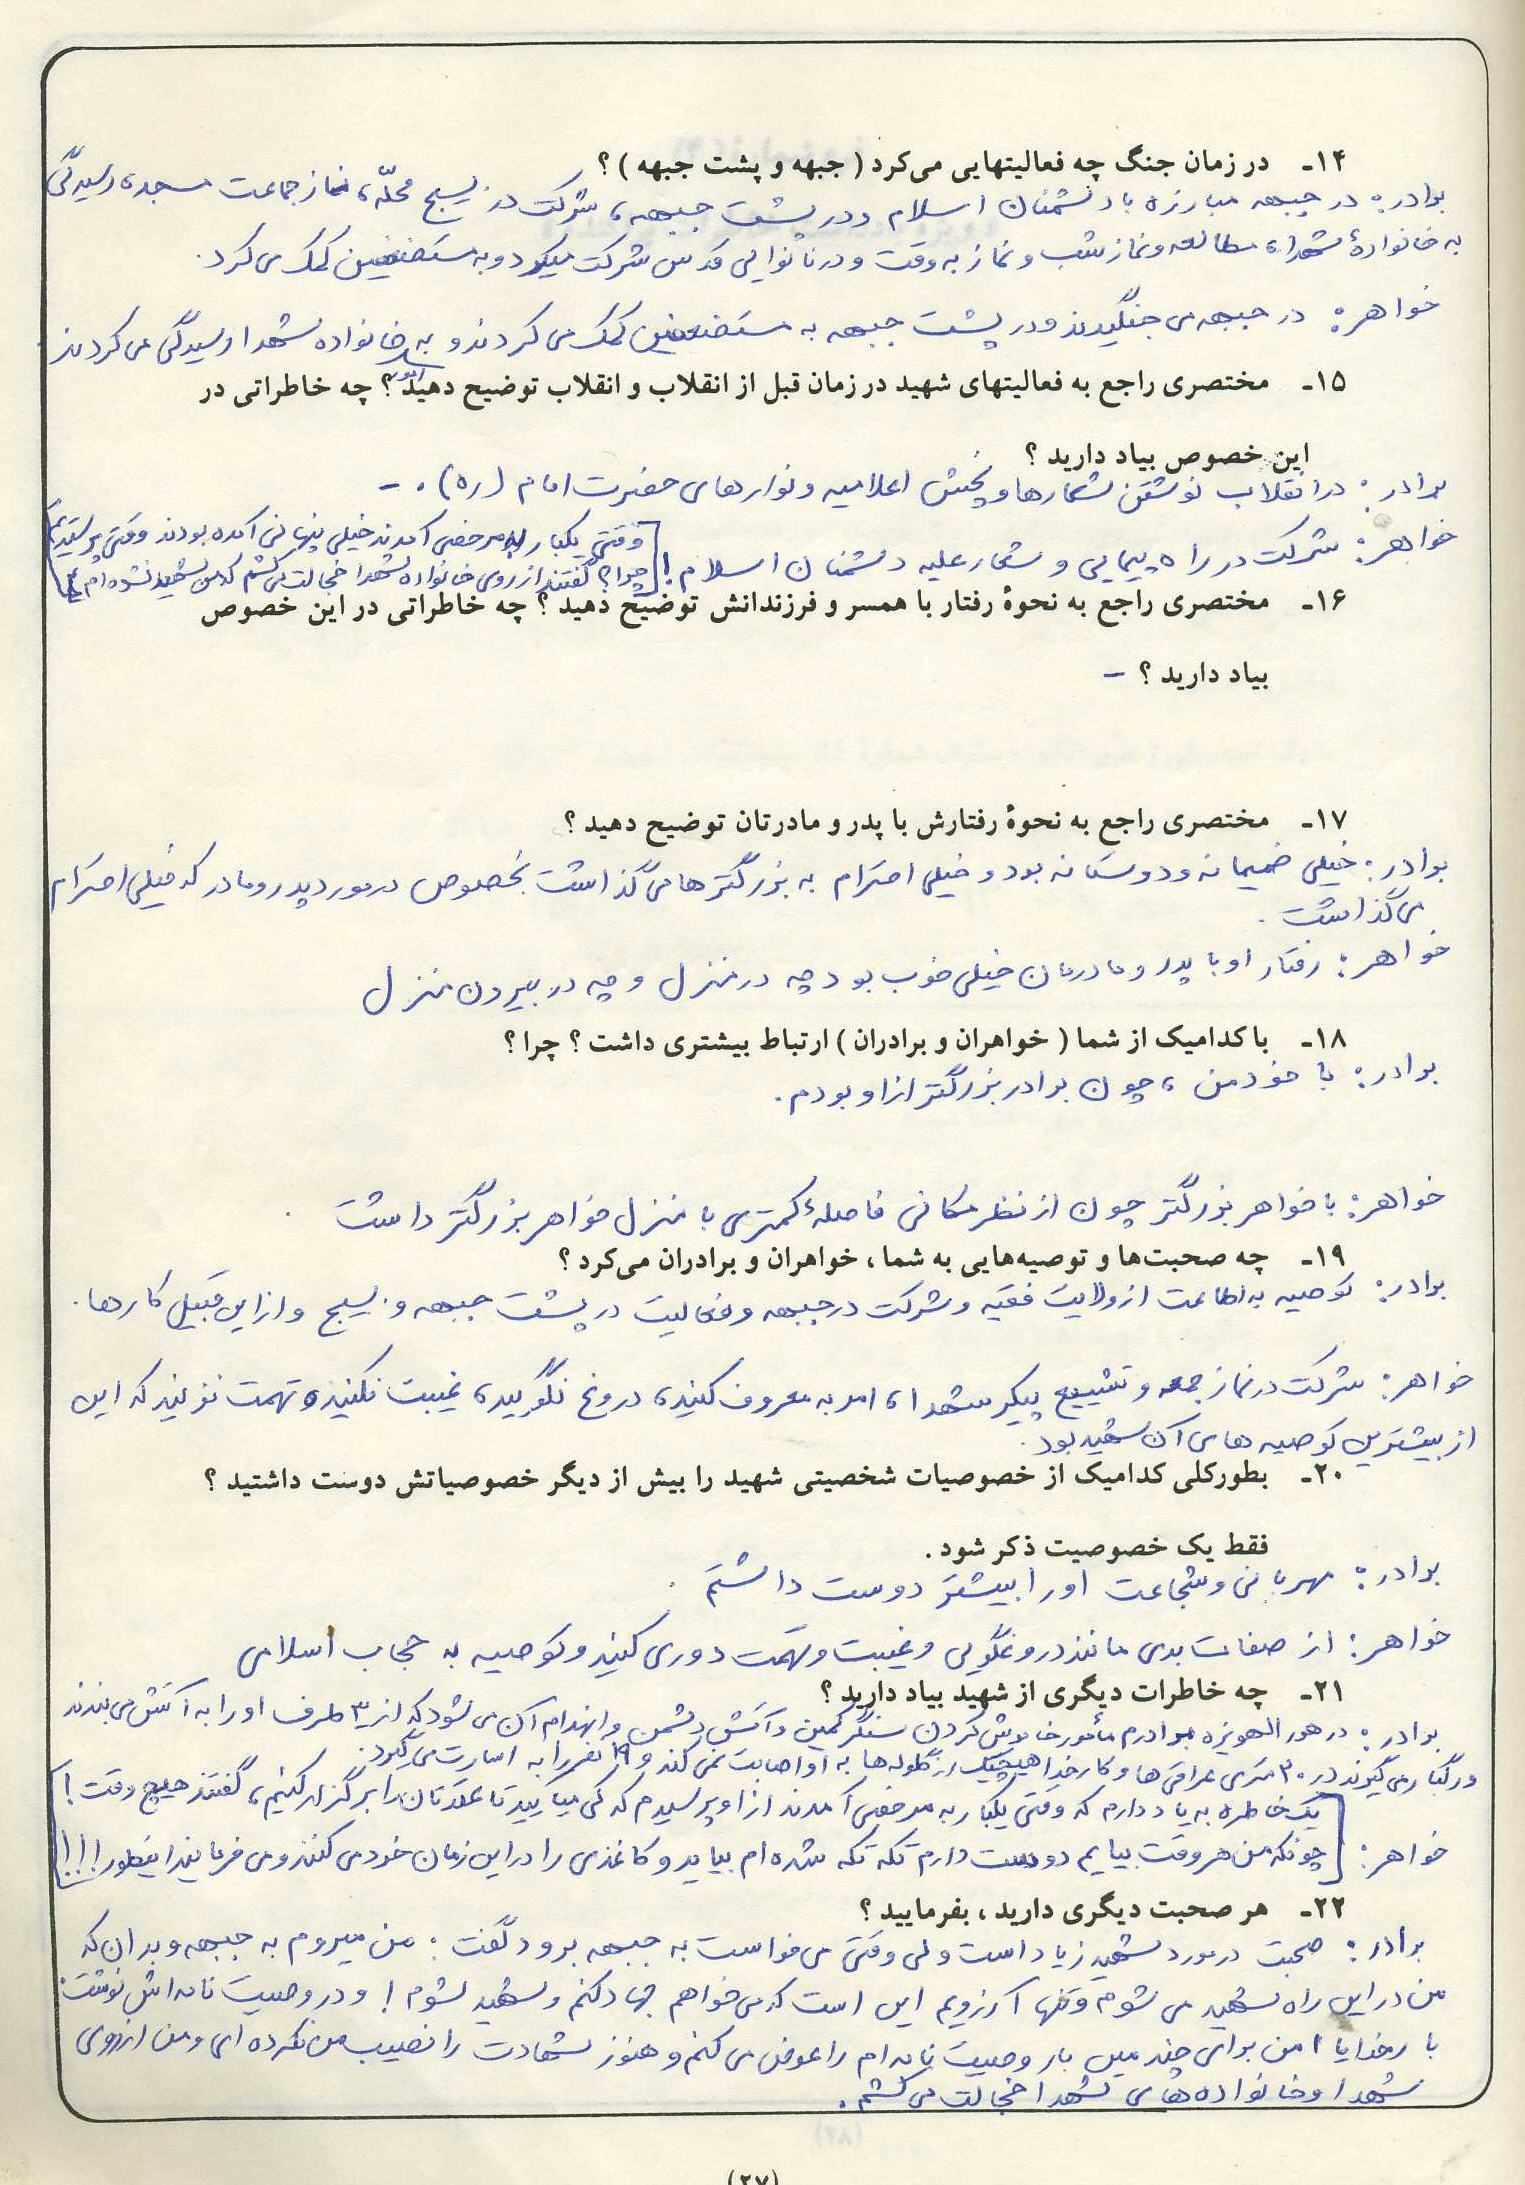 ۱۴- در زمان جنگ چه فعالیتهایی می‌کرد ( جبهه و پشت جبهه ) ؟
برادر: در جبهه مبارزه با دشمنان اسلام و در پشت جبهه، شرکت در بسیج محلّه، نماز جماعت مسجد، رسیدگی
به خانوادهٔ شهداء مطالعه و نماز شب و نماز به وقت و در نانوایی قدس شرکت میکرد و به مستضعفین کمک می‌کرد.
خواهر: در جبهه می جنگیدند و در پشت جبهه به مستضعفین کمک می کردند و به امور خانواده شهدا رسیدگی می کردند.
۱۵- مختصری راجع به فعالیتهای شهید در زمان قبل از انقلاب و انقلاب توضیح دهید ؟ چه خاطراتی در
این خصوص بیاد دارید ؟
برادر: در انقلاب نوشتن شعارها و پخش اعلامیه و نوارهای حضرت امام (ره). -
خواهر: شرکت در راه پیمایی و شعار علیه دشمنان اسلام!
[وقتی یکبار به مرخصی آمدند خیلی پنهانی آمده بودند وقتی پرسیدیم
چرا؟ گفتند از روی خانواده شهدا خجالت می کشم که من شهید نشده ام]
۱۶- مختصری راجع به نحوهٔ رفتار با همسر و فرزندانش توضیح دهید ؟ چه خاطراتی در این خصوص
بیاد دارید ؟ -
۱۷- مختصری راجع به نحوهٔ رفتارش با پدر و مادرتان توضیح دهید ؟
برادر: خیلی صمیمانه و دوستانه بود و خیلی احترام به بزرگترها می‌گذاشت بخصوص در مورد پدر و مادر که خیلی احترام
می گذاشت.
خواهر: رفتار او با پدر و مادرمان خیلی خوب بود چه در منزل و چه در بیرون منزل
۱۸- با کدامیک از شما ( خواهران و برادران ) ارتباط بیشتری داشت ؟ چرا ؟
برادر: با خود من، چون برادر بزرگتر از او بودم.
خواهر: با خواهر بزرگتر چون از نظر مکانی فاصلهٔ کمتری با منزل خواهر بزرگتر داشت.
۱۹- چه صحبت‌ها و توصیه‌هایی به شما ، خواهران و برادران می‌کرد ؟
برادر: توصیه به اطاعت از ولایت فقیه و شرکت در جبهه و فعالیت در پشت جبهه و بسیج و از این قبیل کارها.
خواهر: شرکت در نماز جمعه و تشییع پیکر شهدا، امر به معروف کنید، دروغ نگویید، غیبت نکنید، تهمت نزنید که این
از بیشترین توصیه های آن شهید بود.
۲۰- بطورکلی کدامیک از خصوصیات شخصیتی شهید را بیش از دیگر خصوصیاتش دوست داشتید ؟
فقط یک خصوصیت ذکر شود .
برادر: مهربانی و شجاعت او را بیشتر دوست داشتم.
خواهر: از صفات بدی مانند دروغگویی و غیبت و تهمت دوری کنید و توصیه به حجاب اسلامی
۲۱- چه خاطرات دیگری از شهید بیاد دارید ؟
برادر: در هور الهویزه برادرم مأمور خاموش کردن سنگر کمین و آتش دشمن و انهدام آن می شود که از ۳ طرف او را به آتش می بندند
در رگبار می گیرند در ۳۰ متری عراقی ها و کار خدا هیچیک از گلوله ها به او اصابت نمی کند و ۱۹ نفر را به اسارت می گیرد.
[یک خاطره به یاد دارم که وقتی یکبار به مرخصی آمدند از او پرسیدم که کی میآیید تا عقدتان را برگزار کنیم، گفتند هیچ وقت!
خواهر: چونکه من هر وقت بیایم دوست دارم تکه تکه شده ام بیاید و کاغذی را در این زمان خرد می کنند و می فرمایند اینطور!!!]
۲۲- هر صحبت دیگری دارید ، بفرمایید ؟
برادر: صحبت در مورد شهید زیاد است ولی وقتی می خواست به جبهه برود گفت: من میروم به جبهه و بدان که
من در این راه شهید می شوم و تنها آرزویم این است که می خواهم جهاد کنم و شهید شوم! و در وصیت نامه اش نوشت:
بار خدایا! من برای چندمین بار وصیت نامه ام را عوض می کنم و هنوز شهادت را نصیب من نکرده ای و من از روی
شهدا و خانواده های شهدا خجالت می کشم.
(۲۷)